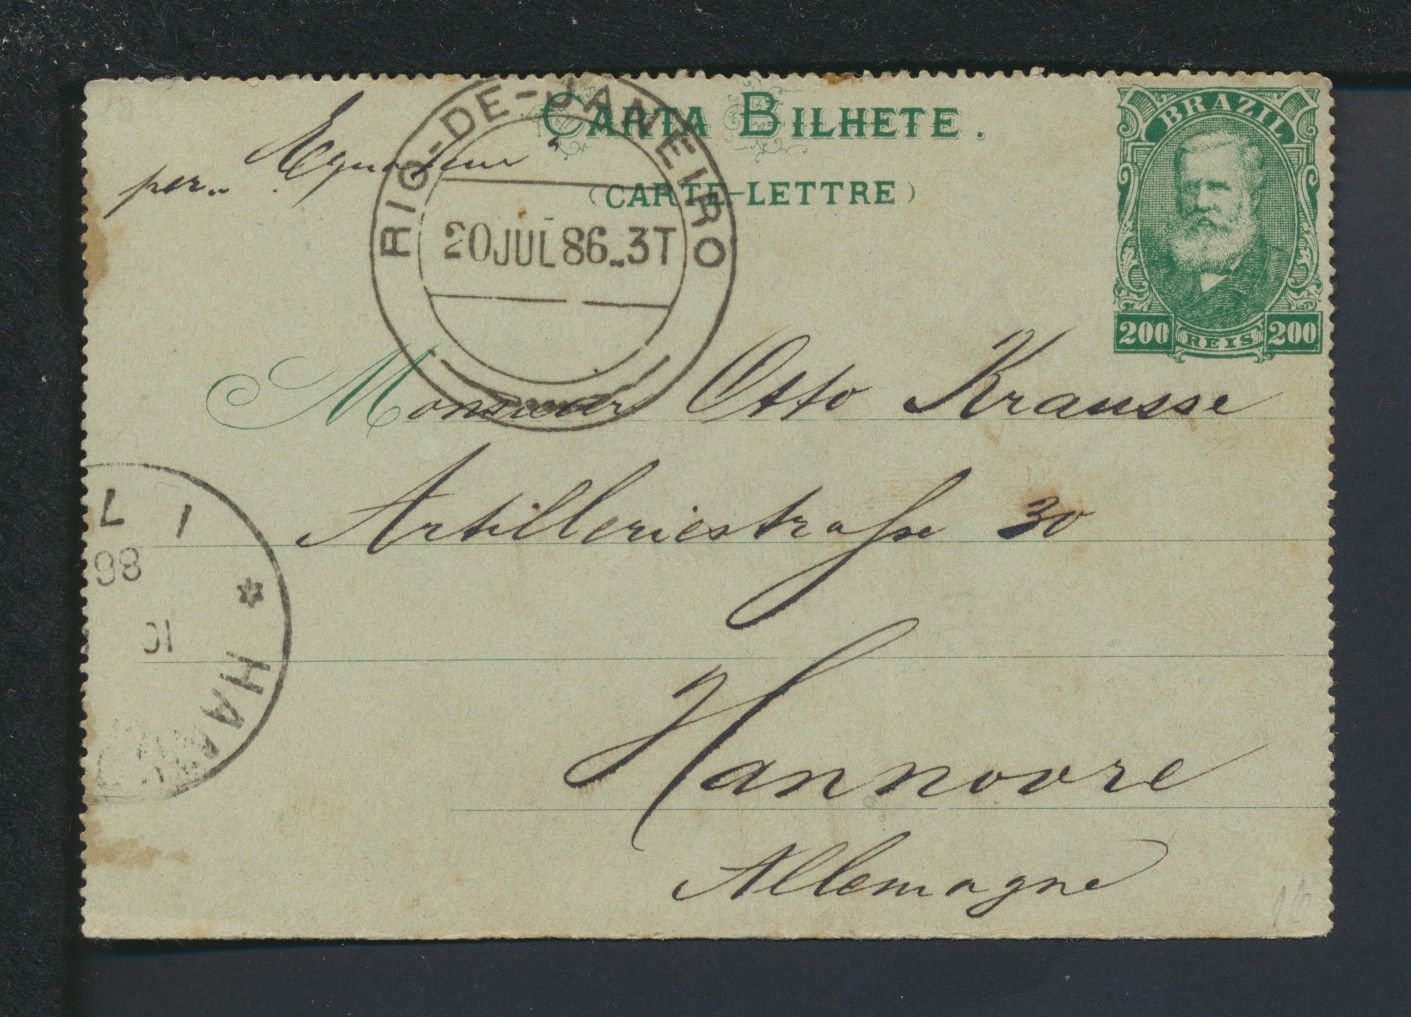 CARTA BILHETE.
(CARTE-LETTRE)
BRAZIL
200 REIS 200
RIO-DE-JANEIRO
20JUL86.3T
per.. Equateur
Monsieur Otto Krausse
Artilleriestraße 30
Hannovre
Allemagne
* HA
86
16